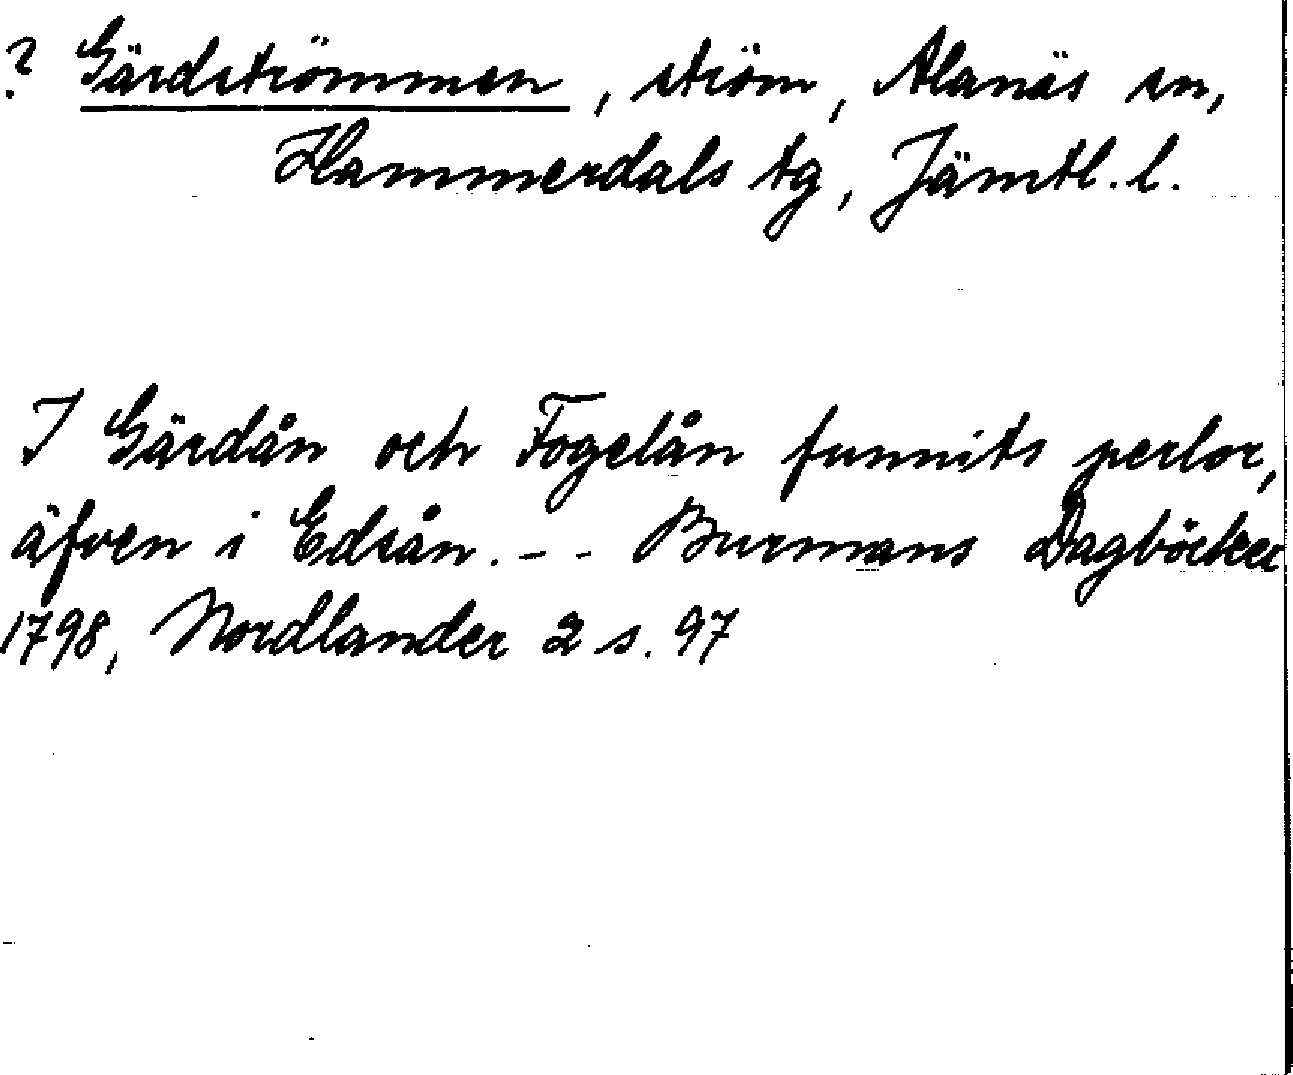 ? Gärdströmmen, ström, Alanäs sn,
Hammerdals tg, Jämtl. l.
I Gärdån och Fogelån funnits perlor,
äfven i Edsån. - - Burmans Dagböcker
1798, Nordlander 2 s. 97